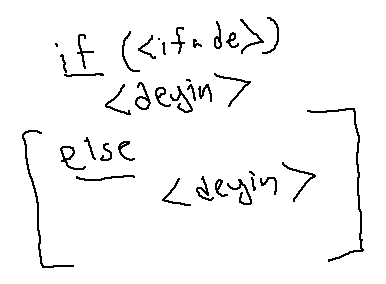 if (<ifade>)
<deyin>
[else
<deyin>]